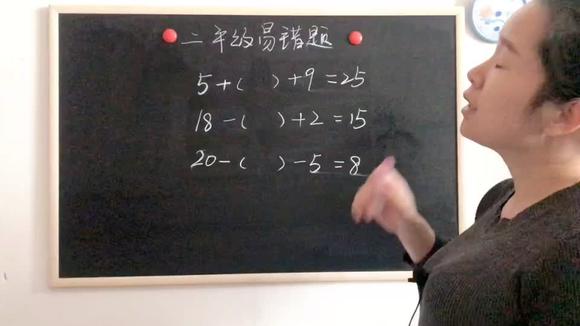 二年级易错题
5+( )+9=25
18-( )+2=15
20-( )-5=8